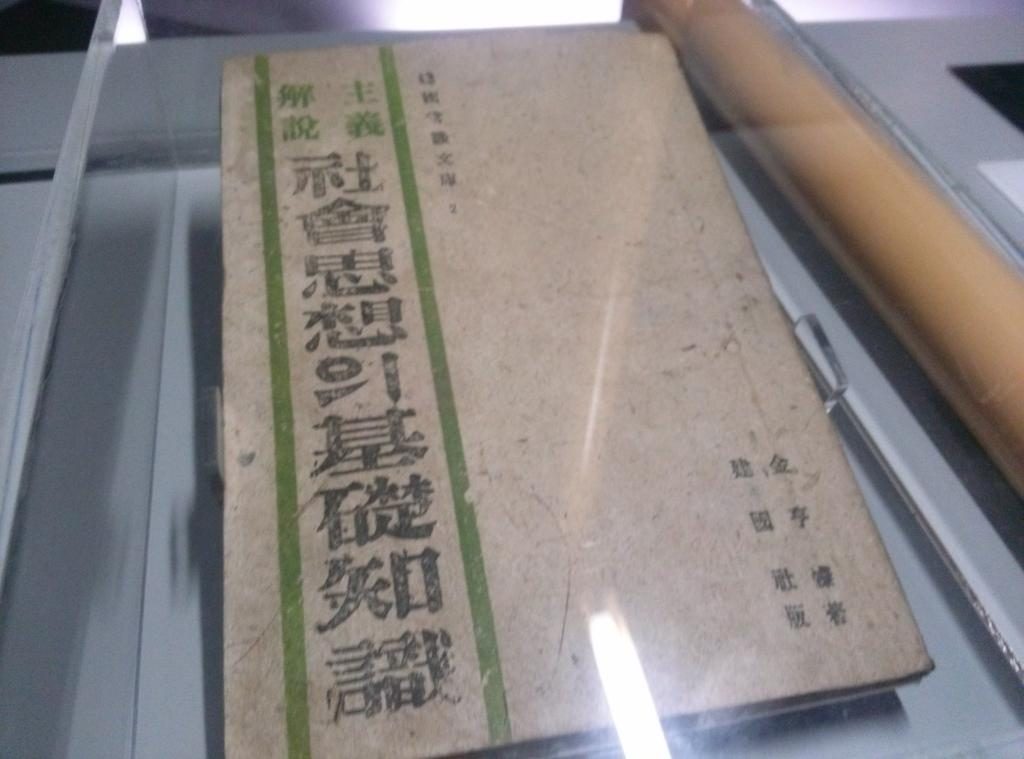 建國常識文庫 2
主義
解說
社會思想의基礎知識
金亨 著
建國社版